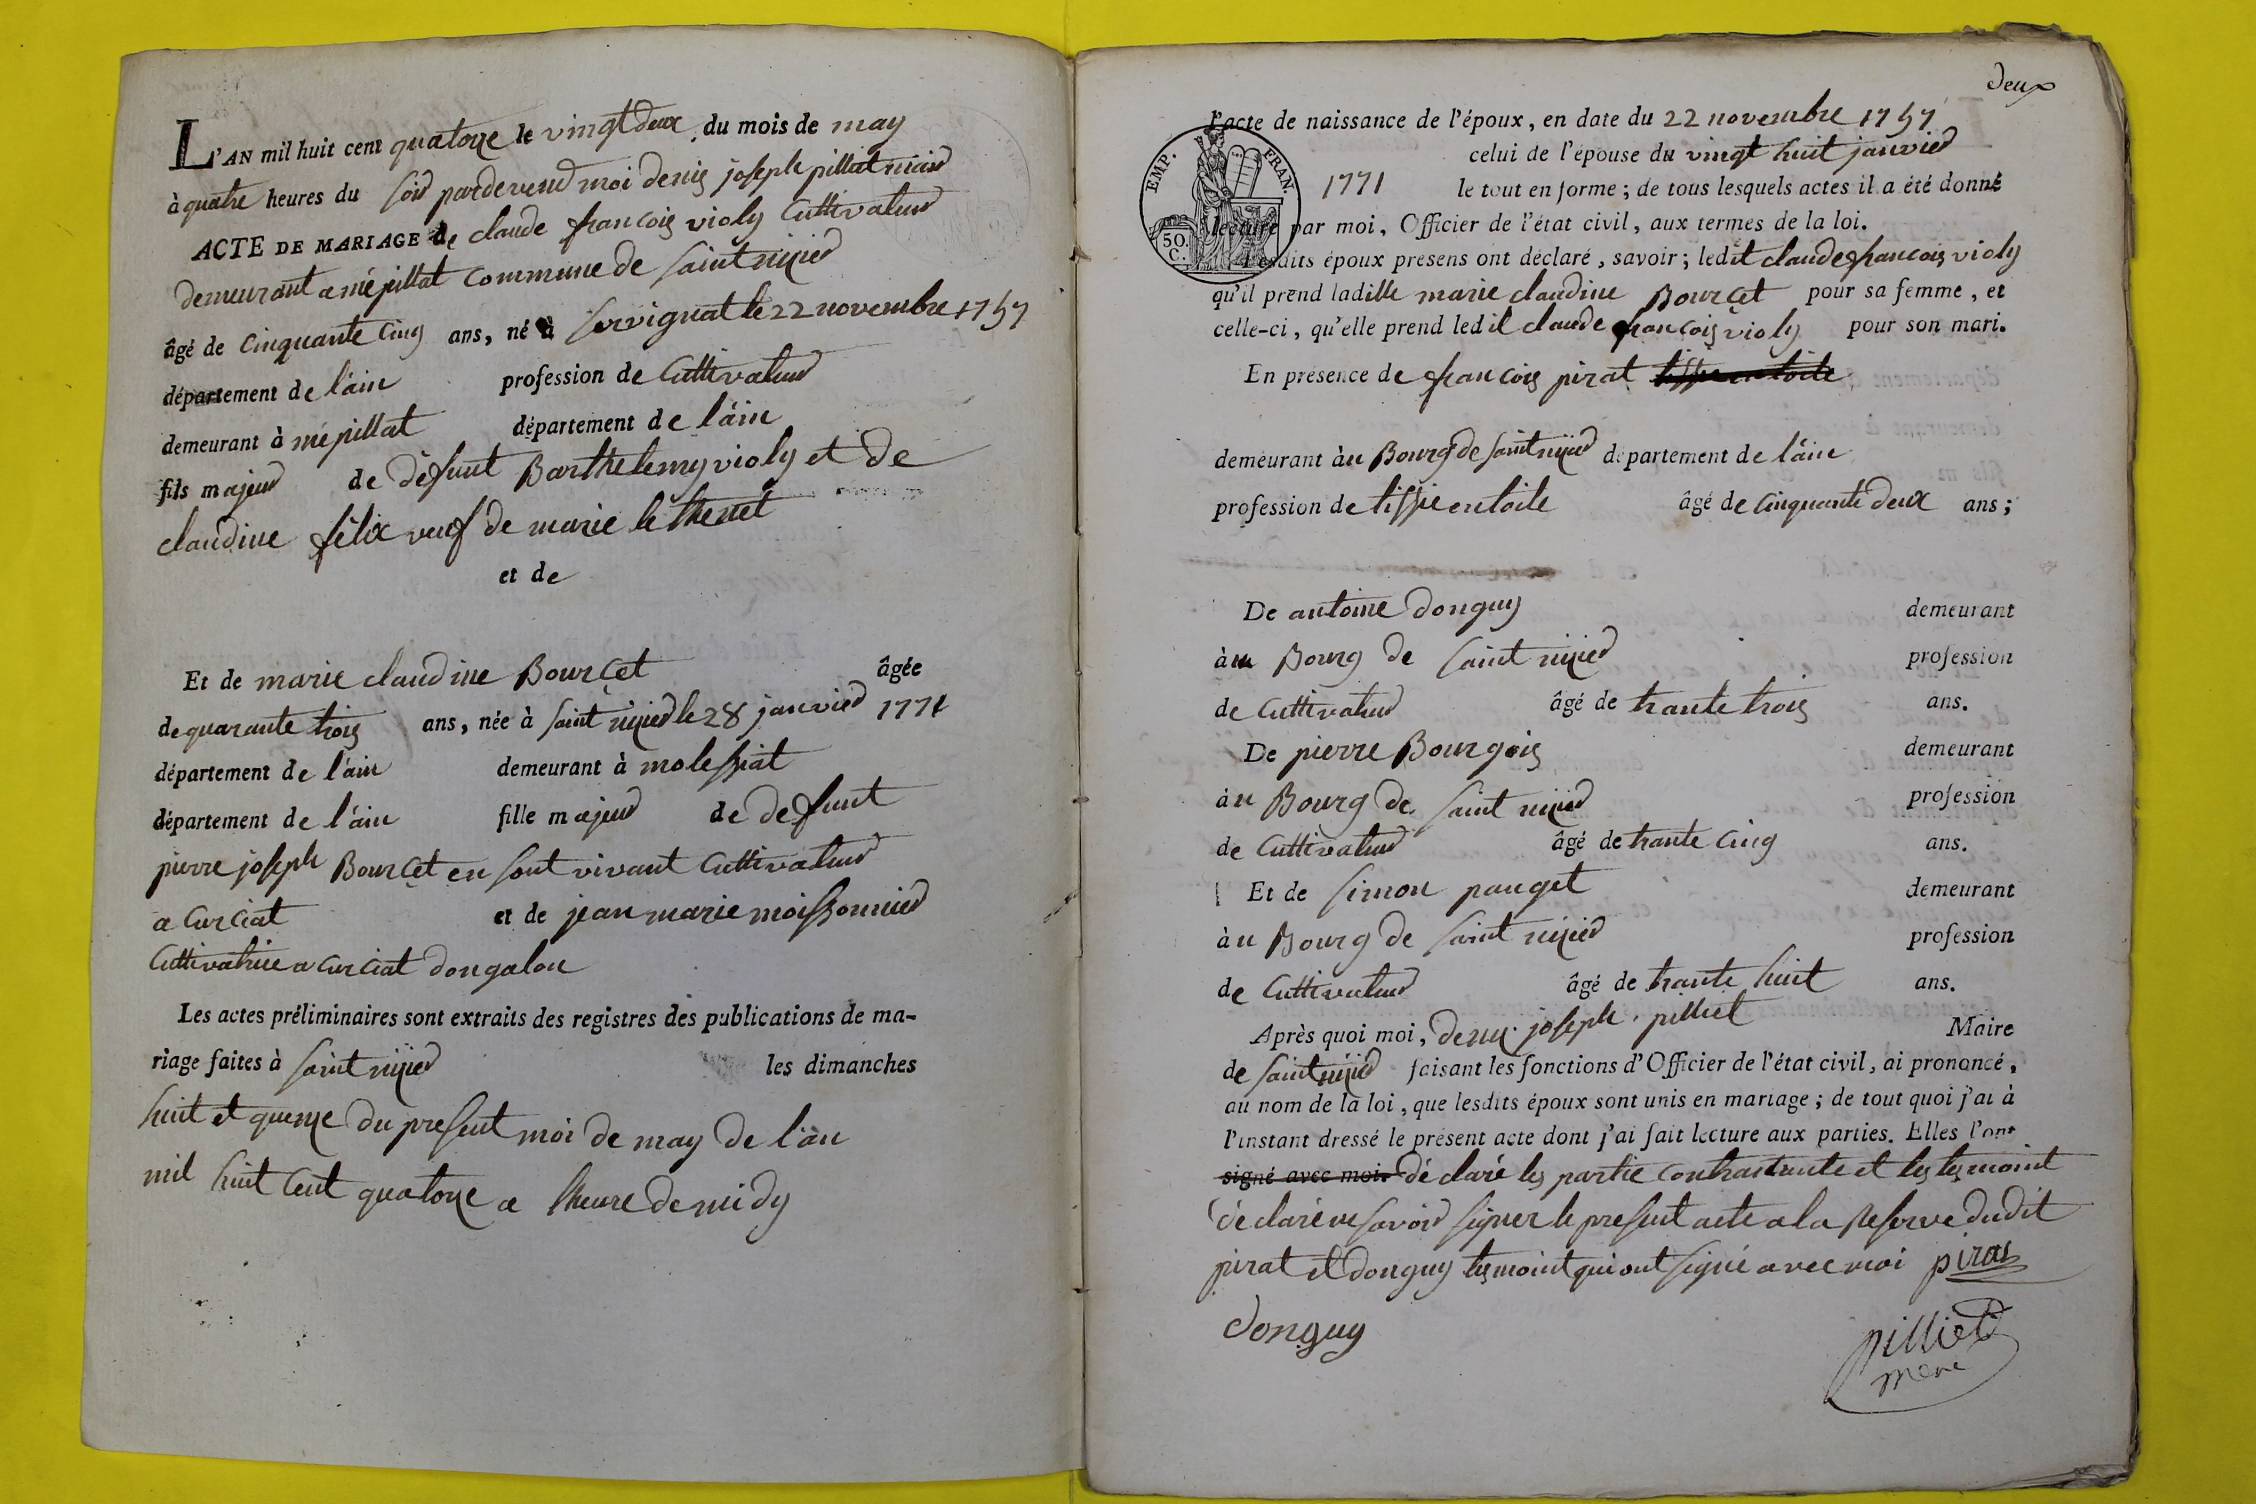 L'AN mil huit cent quatorze le vingt deux du mois de may
à quatre heures du soir pardevend moi denis joseph pilliat maire
ACTE DE MARIAGE de claude francois violy Cultivateur
demeurant a mépillat commune de saint nizier
âgé de cinquante cinq ans, né à servignat le 22 novembre 1757
département de l'ain profession de Cultivateur
demeurant à mépillat département de l'ain
fils majeur de défunt Barthelemy violy et de
claudine félix veuf de marie le thenet
et de
Et de marie claudine Bourcet âgée
de quarante trois ans, née à saint nizier le 28 janvier 1771
département de l'ain demeurant à molessiat
département de l'ain fille majeur de defunt
pierre joseph Bourcet en sont vivant Cultivateur
a Curciat et de jean marie moissonnier
Cultivatrice a curciat dongalon
Les actes préliminaires sont extraits des registres des publications de ma-
riage faites à saint nizier les dimanches
huit et quenze du present moi de may de l'an
mil huit cent quatorze a lheure de midy
deux
l'acte de naissance de l'époux, en date du 22 novembre 1757
celui de l'épouse du vingt huit janvier
1771 le tout en forme ; de tous lesquels actes il a été donné
lecture par moi, Officier de l'état civil, aux termes de la loi.
Lesdits époux présens ont déclaré, savoir ; ledit claude francois violy
qu'il prend ladille marie claudine Bourcet pour sa femme, et
celle-ci, qu'elle prend ledil claude francois violy pour son mari.
En présence de francois pirat tissie en toile
demeurant àu Bourg de saint nizier département de l'ain
profession de tissie en toile âgé de cinquante deux ans ;
De antoine donguy demeurant
àu Bourg de saint nizier profession
de Cultivateur âgé de trante trois ans.
De pierre Bourgois demeurant
àu Bourg de saint nizier profession
de Cultivateur âgé de trante cinq ans.
Et de simon pauget demeurant
àu Bourg de saint nizier profession
de Cultivateur âgé de trante huit ans.
Après quoi moi, denis joseph pilliet Maire
de saint nizier faisant les fonctions d'Officier de l'état civil, ai prononcé,
au nom de la loi, que lesdits époux sont unis en mariage ; de tout quoi j'ai à
l'instant dressé le présent acte dont j'ai fait lecture aux parties. Elles l'ont
signé avec moi. déclaré les partie contractante et les temoint
déclaré ne savoir signer le present acte a la Reserve dudit
pirat et donguy temoint qui ont signé avec moi pirat
donguy
pilliet
mere
EMP. FRAN.
50.
C.